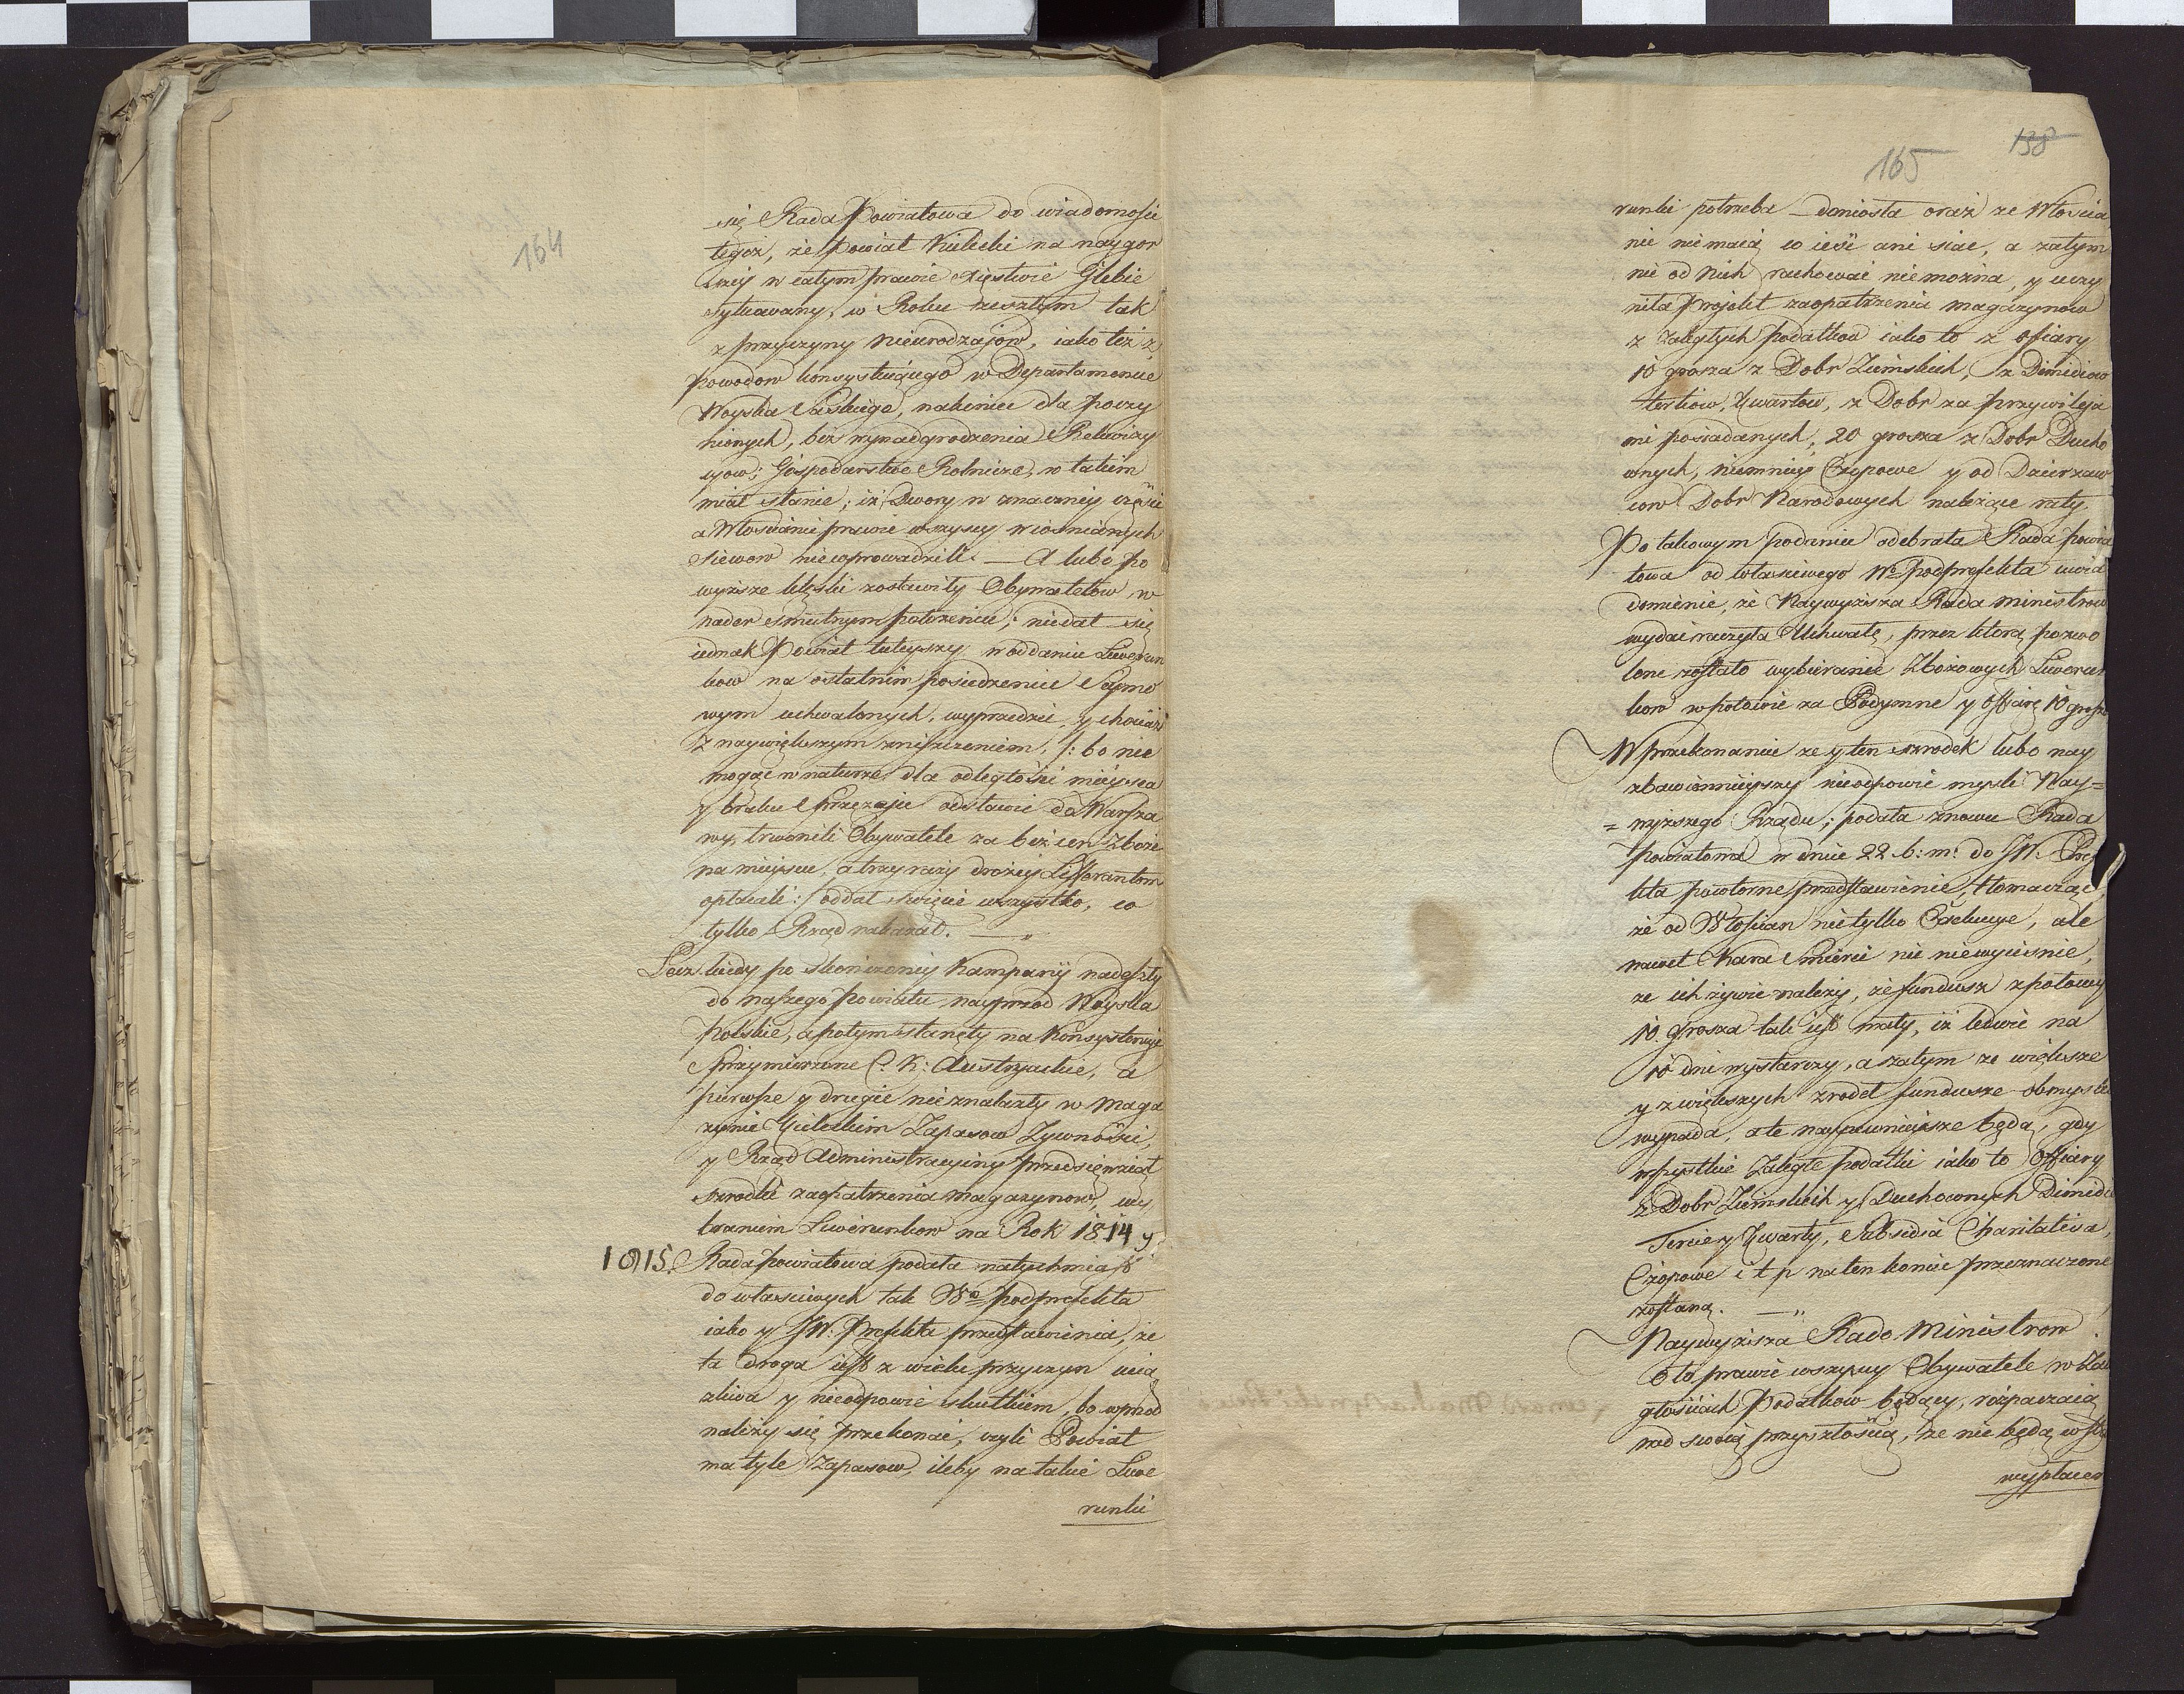 164
się Rada Powiatowa do wiadomości
tegoż, że Powiat Kielecki na naygor
szej w całym prawie Xięstwie Glebie
sytuowany, w Roku zeszłym tak
z przyczyny nieurodzajow, iako też z
powodow konsystuiącego w Departamencie
Woyska Saskiego, nakoniec dla poczy
nionych, bez wynadgrodzenia Rekwizy
cyow; Gospodarstwo Rolnicze, w takim
miał stanie; iż Dwory w znaczney części
a Włościanie prawie wszyscy wiosnianych
siewow nieoprowadzili. — A lubo po
wyższe klęski zostawiły Obywatelow w
nader smutnym położeniu; niedał się
iednak Powiat tuteyszy w oddaniu Liwerun
kow na ostatnim posiedzeniu Seymo
wym uchwalonych, wyprzedzić, y chociaż
z naywiększym zniszczeniem, /: bo nie
mogąc w naturze dla odległości mieysca
y braku Sprzężaju odstawić do Warsza
wy, trwonili Obywatele za bezcen Zboże
na mieyscu, a trzy razy drożey Lifferantom
opłacali :/ oddał święcie wszystko, co
tylko Rząd nakazał. —"
Lecz kiedy po skończoney Kampanij nadeszły
do naszego powiatu nayprzod Woyska
Polskie, a potym stanęły na Konsystencyi
Sprzymierzone C. K: Austryackie, a
pierwsze y drugie nieznalazły w Maga
zynie Kieleckim Zapasow Zywności,
y Rząd Administracyiny przedsięwziął
szrodki zaopatrzenia magazynow, wy
braniem Liwerunkow na Rok 1814 y
1815. Rada powiatowa podała natychmiast
do właściwych tak Wo podprefekta
iako y JW. Prefekta przedstawienia, że
ta droga iest z wielu przyczyn ucią
żliwa y nieodpowie skutkiem, bo wprzod
należy się przekonać, czyli Powiat
ma tyle Zapasow, ileby na takie Liwe
runki
138
165
runki potrzeba — doniosła oraz że Włościa
nie niemaią co ieść ani siać, a zatym
nic od nich rachować niemożna, y uczy
niła Projekt zaopatrzenia magazynow
z zaległych podatkow iako to z ofiary
10 grosza z Dobr Ziemskich, z Dimidiow
tertiow, kwartow, z Dobr za przywileja
mi posiadanych, 20 grosza z Dobr Ducho
wnych, niemniey Czopowe y od Dzierzaw
cow Dobr Narodowych należące raty.
Po takowym podaniu odebrała Rada powia
towa od właściwego Wo podprefekta uwia
domienie, że Naywyższa Rada Ministrow
wydać raczyła Uchwałę, przez ktorą pozwo
lone zostało wybieranie Zbożowych Liwerun
kow w połowie za Podymne y ofiarę 10 grosza
W przekonaniu że y ten szrodek lubo nay
zbawiennieyszy nieodpowie myśli Nay=
=wyższego Rządu; podała znowu Rada
Powiatowa w dniu 22 b: m: do JW. Pref
kta powtorne przedstawienie, tłomacząc
że od Włościan nietylko Exekucye, ale
nawet Kara śmierci nic niewyciśnie,
że ich żywić należy, że fundusz z połowy
10. grosza tak iest mały, iż ledwie na
10 dni wystarczy, a zatym że większe
y z większych zrodeł fundusze obmyśle
wypada, ale naypewnieysze będą, gdy
wszystkie Zaległe podatki iako to Offiary
z Dobr Ziemskich y Duchownych Dimidia
Tercie y Kwarty, Subsidia Charitativa,
Czopowe i t p na ten koniec przeznaczone
zostaną. —"
Naywyższa Rado Ministrow
Oto prawie wszyscy Obywatele w Zale
głościach Podatkow będący, rozpaczaią
nad swoią przyszłością, że nie będą w sta
wypłacen